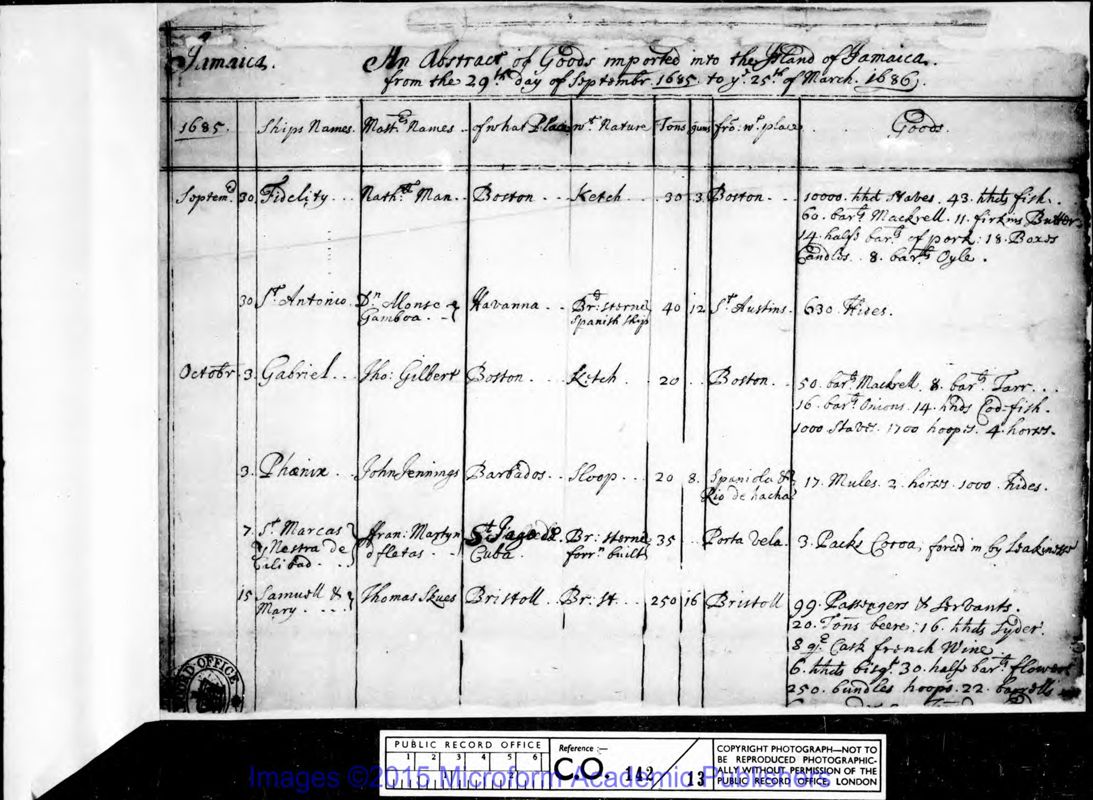 Jamaica. An Abstract of Goods imported into the Island of Jamaica.
from the 29th day of Septembr. 1685. to ye. 25th of March. 1686.
1685. Ships Names. Mastrs Names. of what Place wt. Nature Tons guns fro: wt. place Goods.
Septemb. 30 Fidelity . . . Nathll. Man . . Boston . . Ketch . . . 30 3. Boston . . . 10000. hhd Staves. 43. hhds fish.
60. barrs Mackrell. 11. firkins Butter
14. halfe barrs of pork. 18. Boxes
Candles . . 8. barrs Oyle.
30 St. Antonio. Dn. Alonse Havanna . . Brd: sterne 40 12. St. Austins. 630 Hides.
Gamboa . . Spanish Ship
Octobr. 3. Gabriel . . . Tho: Gilbert Boston . . . Ketch . . . 20 . . Boston . . . 50. barrs Mackrell. 8. barrs Tarr. . . .
16. barrs Onions. 14. hhds Cod-fish.
1000 Staves. 1700 hoopes. 4. horses.
3. Phœnix . . . John Jennings Barbados . . Sloop . . . 20 8. Spaniola & 17. Mules. 2. horses. 1000. hides.
Rio de hacha
7. St. Marcas ffran: Martyn St. Jago de Br: sterne 35 . . Porta Vela. 3. Packs Cocoa, forced in by Leakiness
Nestra de d fletas . . Cuba. forrn built
Cilidad . .
15 Samuell & Thomas Skues Bristoll . . Br: St. . . 250 16 Bristoll 99. Passengers & Servants.
Mary . . . . 20. Tons beere: 16. hhds Syder.
8 qr. Cask french Wine
6. hhds bisqt. 30. halfe barrs flower
250. bundles hoops. 22. barrells
PUBLIC RECORD OFFICE
1 2 3 4 5 6
1 2
Reference :-
C.O. 142 / 13
COPYRIGHT PHOTOGRAPH—NOT TO
BE REPRODUCED PHOTOGRAPHIC-
ALLY WITHOUT PERMISSION OF THE
PUBLIC RECORD OFFICE, LONDON
Images ©2015 Microform Academic Publishers